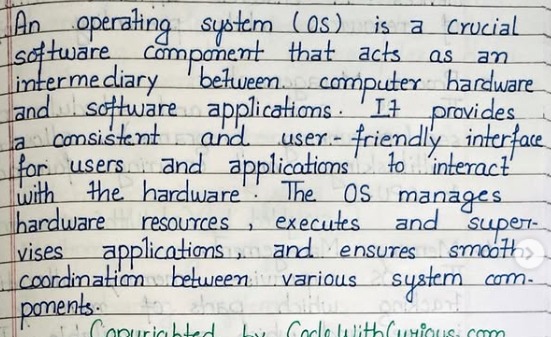 An operating system (OS) is a crucial
software component that acts as an
intermediary between computer hardware
and software applications. It provides
a consistent and user-friendly interface
for users and applications to interact
with the hardware. The OS manages
hardware resources, executes and super-
vises applications, and ensures smooth
coordination between various system com-
ponents.
Copyrighted by CodeWithCurious.com